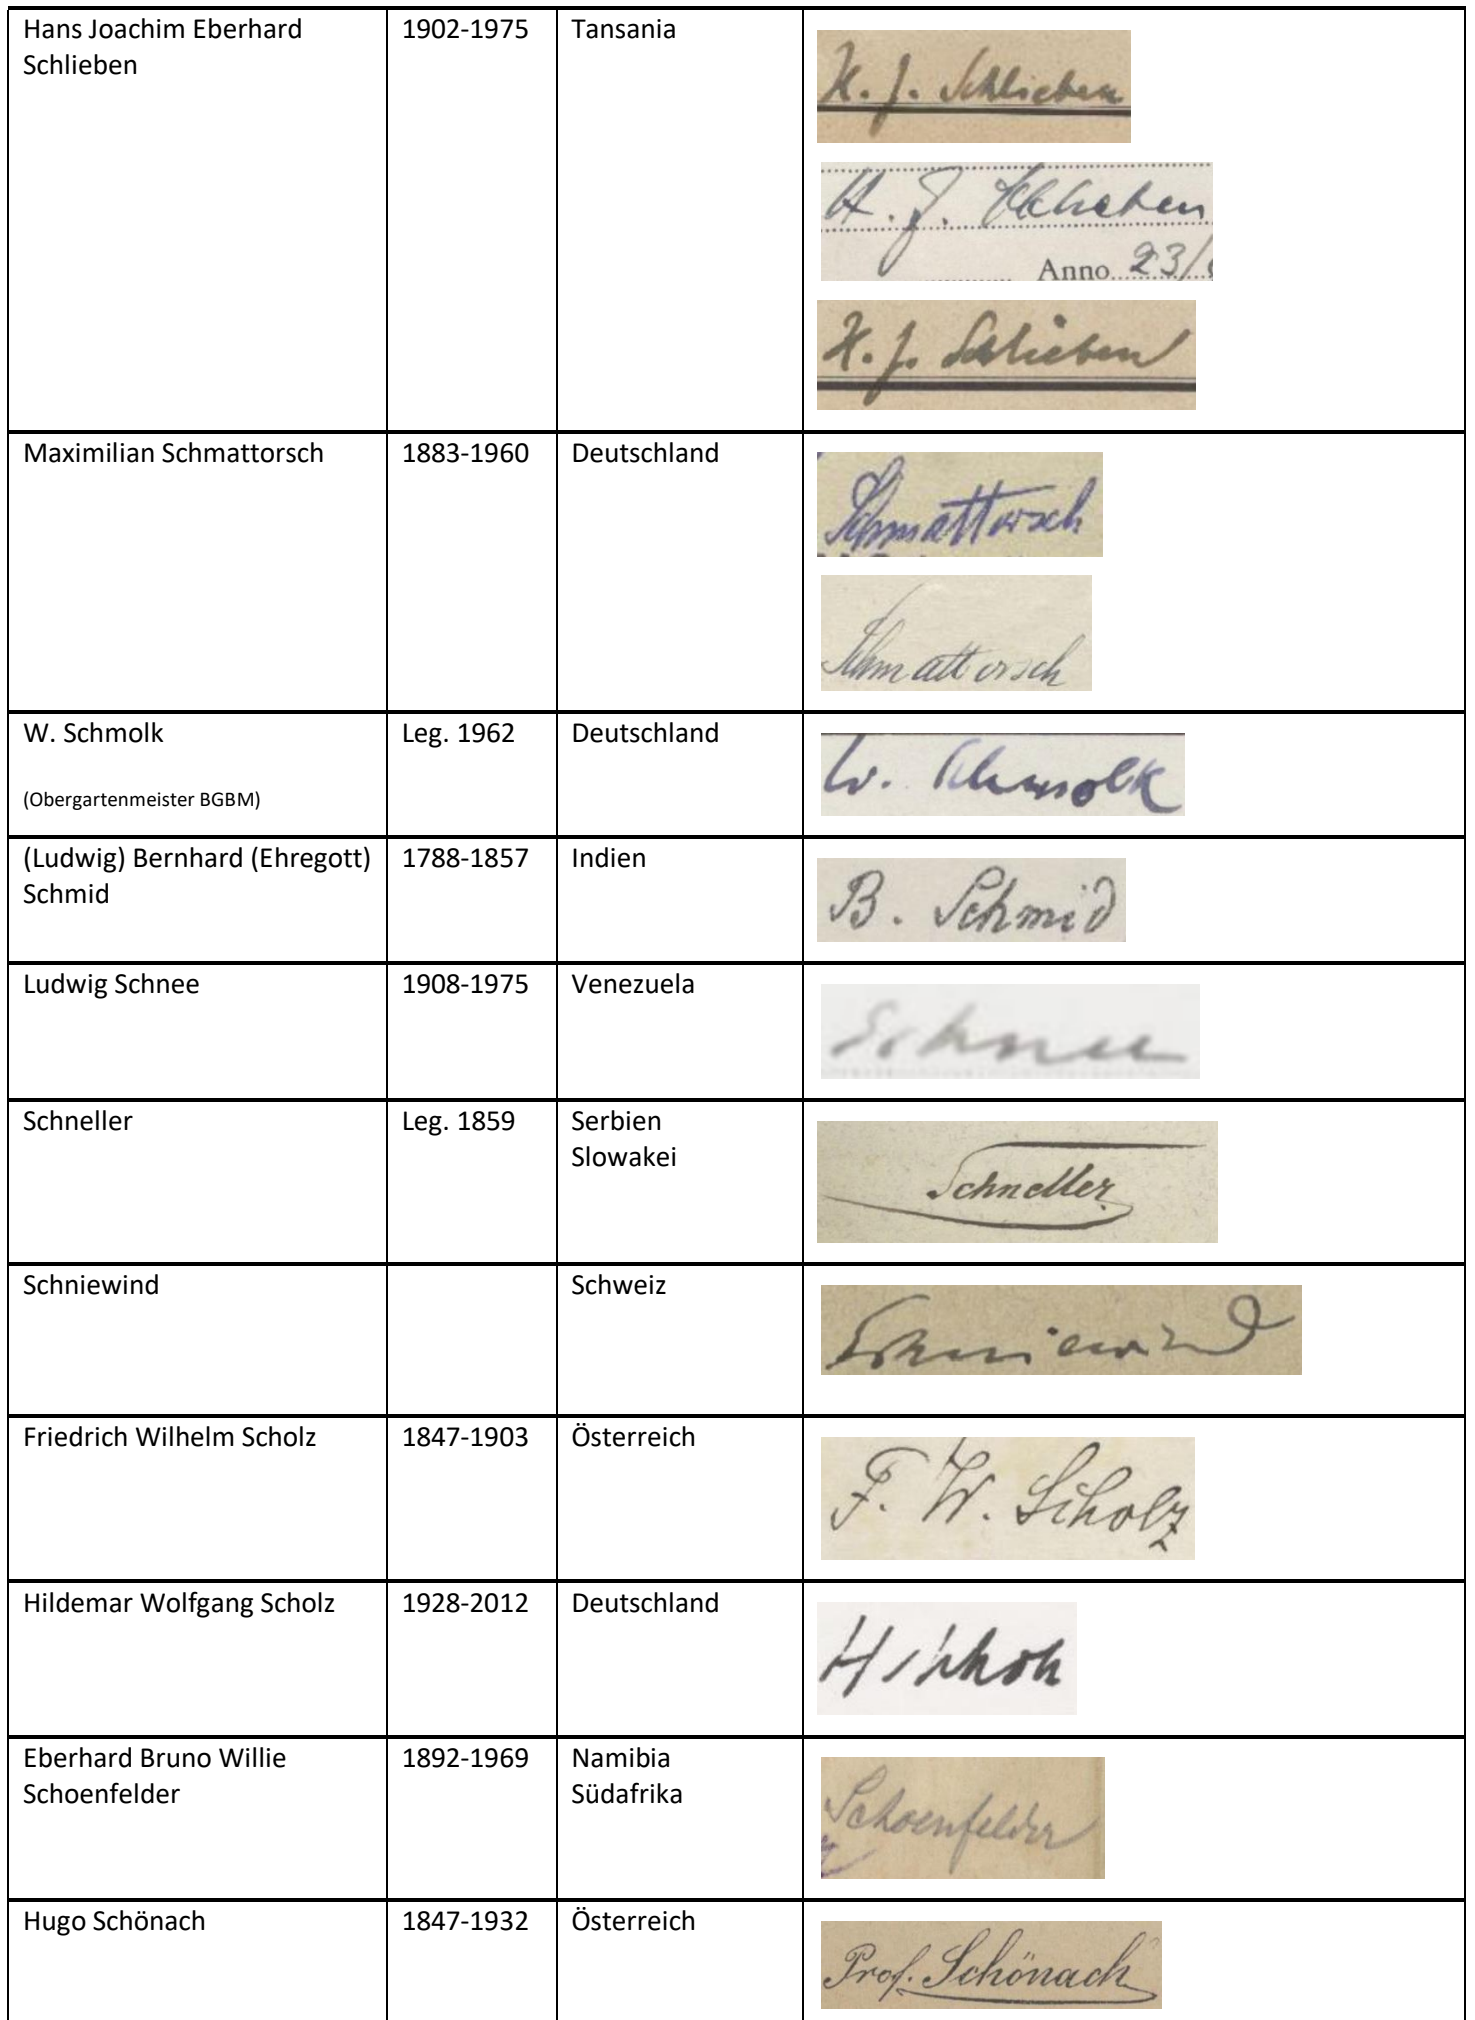 Hans Joachim Eberhard
Schlieben
1902-1975
Tansania
H. J. Schlieben
H. J. Schlieben
Anno 23/
H. J. Schlieben
Maximilian Schmattorsch
1883-1960
Deutschland
Schmattorsch
Schmattorsch
W. Schmolk
(Obergartenmeister BGBM)
Leg. 1962
Deutschland
W. Schmolk
(Ludwig) Bernhard (Ehregott)
Schmid
1788-1857
Indien
B. Schmid
Ludwig Schnee
1908-1975
Venezuela
Schnee
Schneller
Leg. 1859
Serbien
Slowakei
Schneller
Schniewind
Schweiz
Schniewind
Friedrich Wilhelm Scholz
1847-1903
Österreich
F. W. Scholz
Hildemar Wolfgang Scholz
1928-2012
Deutschland
H Scholz
Eberhard Bruno Willie
Schoenfelder
1892-1969
Namibia
Südafrika
Schoenfelder
Hugo Schönach
1847-1932
Österreich
Prof. Schönach